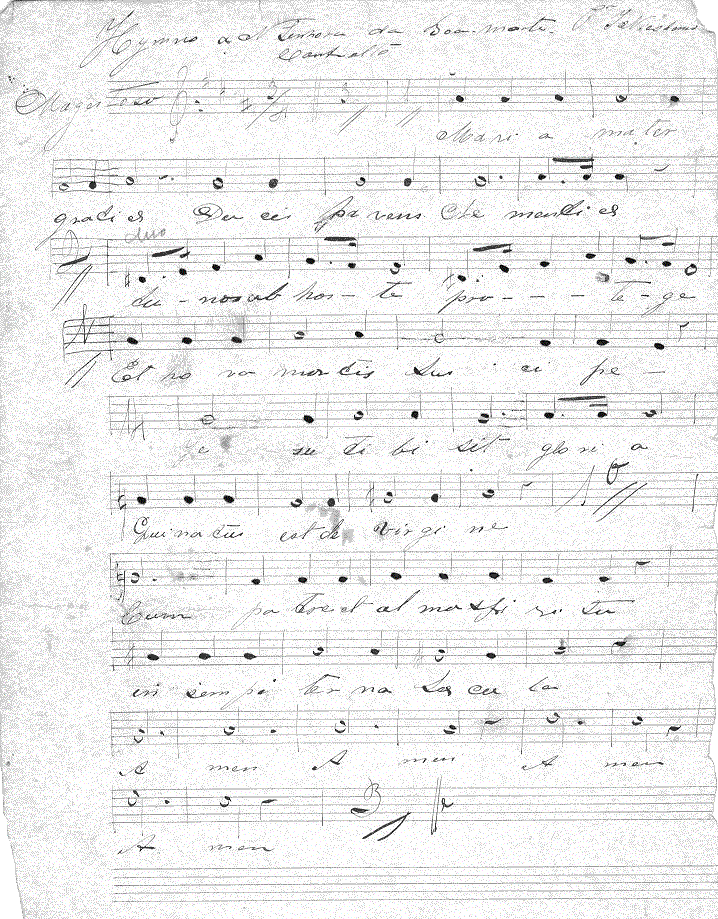 Hymno a N Senhora da Boa morte.
Contralto
Magestoso
Mari a mater
graties Du cis parens Cle menties
duo
tu - nosab hos - te pro - - - te - ge
Et ho ra mortis sus i ci pe -
Je su ti bi sit glori a
Qui natus est de virgi ne
Cum pa treiet al mospi ri tu
in sempi ter na Sa cu la
A men A men A men
A men